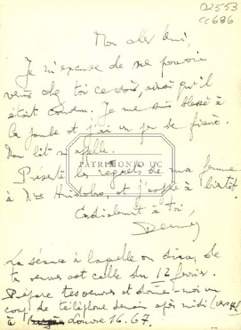 02553
cc686
Mon cher ami,
Je m'excuse de ne pouvoir
venir chez toi ce soir, ainsi qu'il
était convenu. Je me suis blessé à
la jambe et j'ai un peu de fièvre.
Mon lit m'appelle.
PATRIMONIO UC
Présente les regrets de ma femme
à Mme Huidobro, et j'espère à bientôt.
Cordialement à toi,
La séance à laquelle on dira de
tes vers est celle du 12 février.
Prépare tes oeuvres et donne-moi un
coup de téléphone demain après midi (vers
à Louvre 16.67.